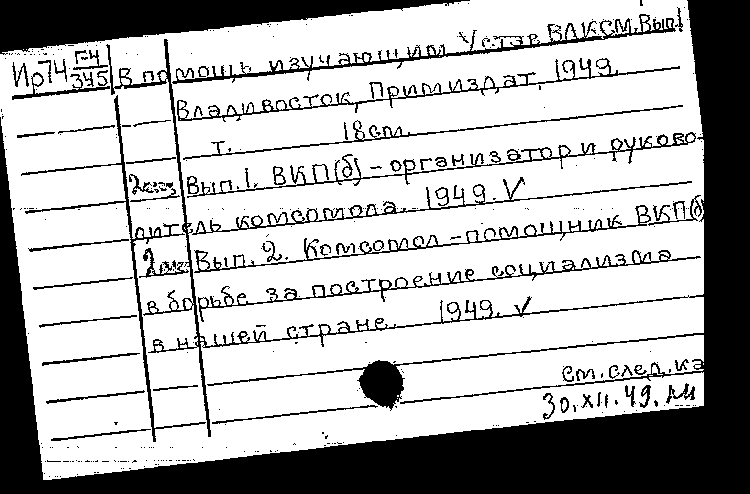 Ир74 Г-4/345 В помощь изучающим Устав ВЛКСМ. Вып. 1
Владивосток, Примиздат, 1949.
т. 18см.
2экз Вып. 1. ВКП(б) - организатор и руково-
дитель комсомола. 1949. ✓
2экз Вып. 2. Комсомол - помощник ВКП(б)
в борьбе за построение социализма
в нашей стране. 1949. ✓
см. след. ка
30.XII.49.